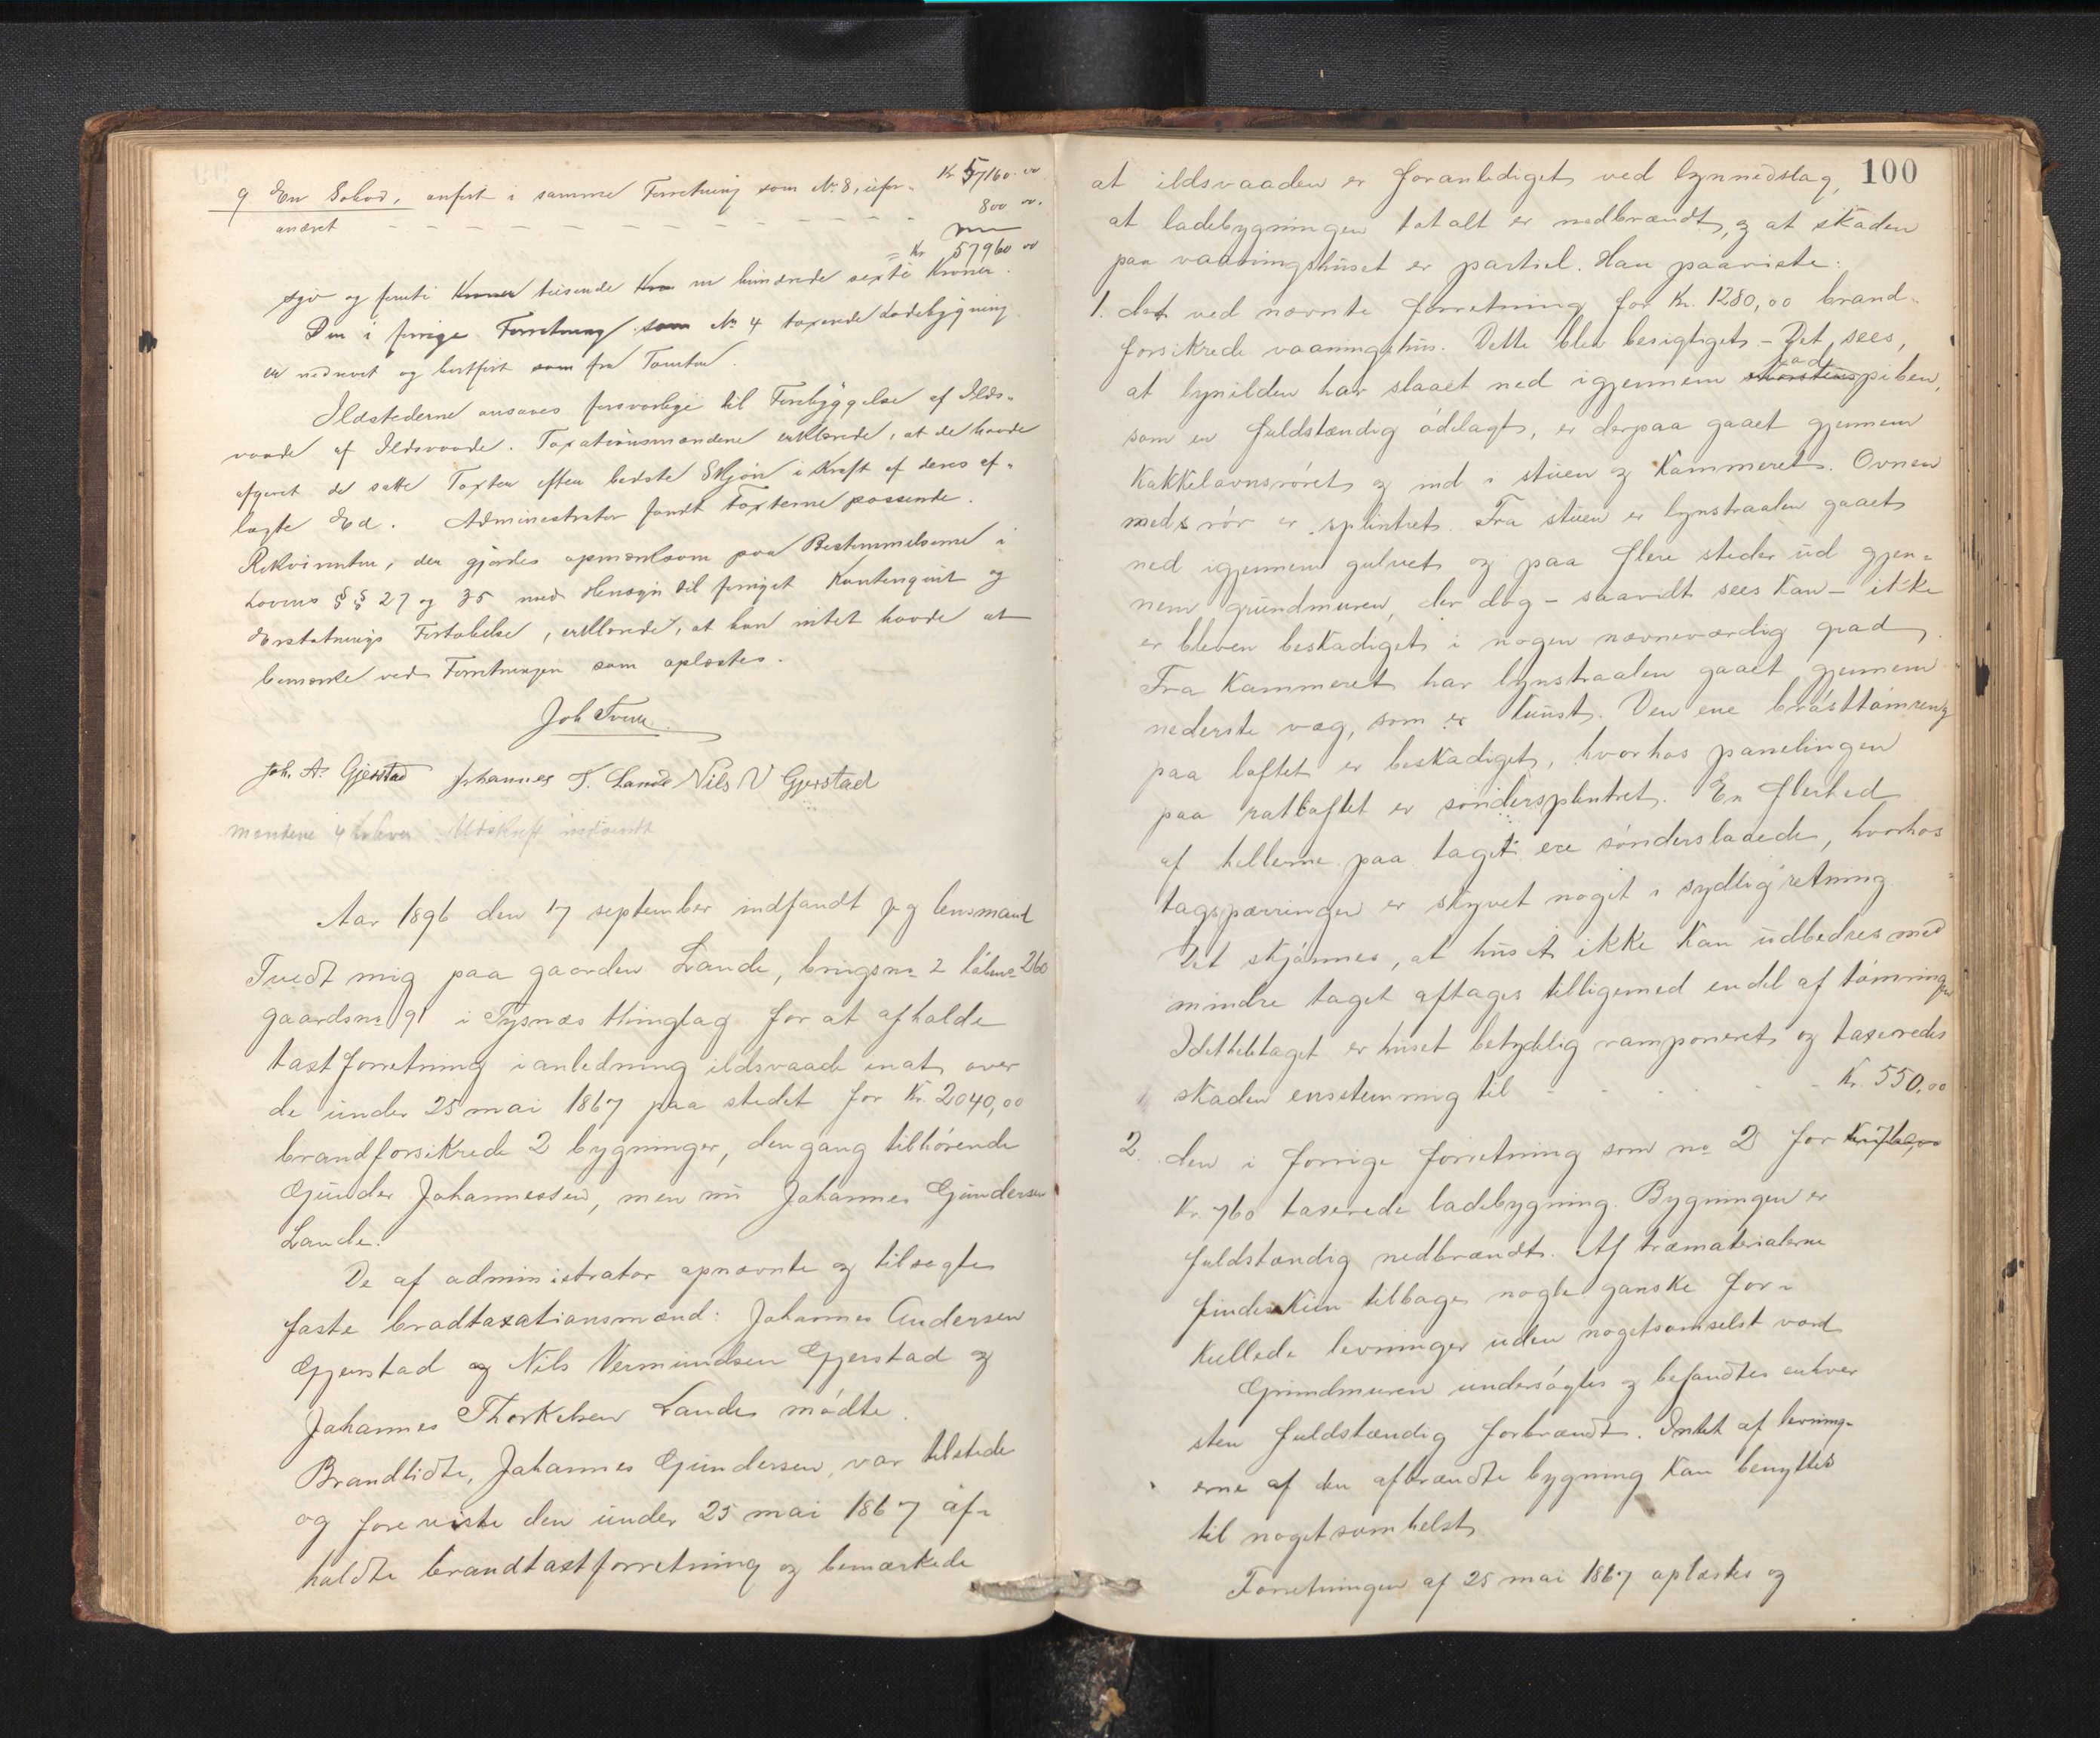 Kr. 57160.00
9 En Sobod, anført i samme Forretning som No 8, ufor-
andret 800 00.
= Kr 57960 00
syv og femti tusende ni hundrede sexti Kroner.
Den i forrige Forretning som No 4 taxerede Ladebygning
er nedrevet og bortført fra Tomten.
Ildstederne ansaaes forsvarlige til Forebyggelse af Ilds-
vaade af Ildsvaade. Taxationsmændene erklærede, at de havde
afgivet de satte Taxter efter bedste Skjøn i Kraft af deres af-
lagte Ed. Administrator fandt Taxterne passende.
Rekvirenten, der gjordes opmærksom paa Bestemmelserne i
Lovens §§ 27 og 35 med Hensyn til forøget Kontingent og
Erstatnings Fortabelse, erklærede, at han intet havde at
bemærke ved Forretningen som oplæstes.
Joh Tveit
Joh. A. Gjerstad Johannes T. Lande Nils V Gjerstad
Udskrift indsendt
Aar 1896 den 17 september indfandt jeg lensmand
Tvedt mig paa gaarden Lande, brugsno 2 løbeno 260
gaardsno 91 i Tysnæs thinglag for at afholde
taxtforretning i anledning ildsvaade inat over
de under 25 mai 1867 paa stedet for Kr. 2040,00
brandforsikrede 2 bygninger, dengang tilhørende
Gunder Johannessen, men nu Johannes Gundersen
Lande.
De af administrator opnævnte og tilsagte
faste bradtaxationsmænd: Johannes Andersen
Gjerstad og Nils Vermundsen Gjerstad og
Johannes Thorkelsen Lande mødte.
Brandlidte, Johannes Gundersen, var tilstede
og foreviste den under 25 mai 1867 af-
holdte brandtaxtforretning og bemærkede
100
at ildsvaaden er foranlediget ved lynnedslag,
at ladebygningen totalt er nedbrændt, og at skaden
paa vaaningshuset er partiel. Han paaviste:
1. det ved nævnte forretning for Kr. 1280,00 brand-
forsikrede vaaningshus. Dette blev besigtiget - Det sees,
at lynilden har slaaet ned igjennem skorstenspiben,
som er fuldstændig ødelagt, er derpaa gaaet gjennem
kakkelovnsrøret og ind i stuen og kammeret. Ovnen
med rør er splintret. Fra stuen er lynstraalen gaaet
ned igjennem gulvet og paa flere steder ud gjen-
nem grundmuren, der dog - saavidt sees kan - ikke
er bleven beskadiget i nogen nævneværdig grad.
Fra kammeret har lynstraalen gaaet gjennem
nederste væg, som er knust. Den ene brøsttømring
paa loftet er beskadiget, hvorhos panelingen
paa loftet er søndersplintret. En flerhed
af hellerne paa taget ere sønderslaaede, hvorhos
tagsparringen er skyvet noget i sydlig retning.
Det skjønnes, at huset ikke kan udbedres med
mindre taget aftages tilligemed endel af tømringen
Idethele taget er huset betydelig ramponeret og taxeredes
skaden enstemmig til - - - - - Kr. 550,00
2. den i forrige forretning som no 2 for
Kr. 760 taxerede ladebygning. Bygningen er
fuldstændig nedbrændt. Af træmaterialerne
findes kun tilbage nogle ganske for-
kullede levninger uden nogetsomhelst værd
Grundmuren undersøgtes og befandtes enhver
sten fuldstændig forbrændt. Intet af levning-
erne af den afbrændte bygning kan benyttes
til nogetsomhelst
Forretningen af 25 mai 1867 oplæstes og